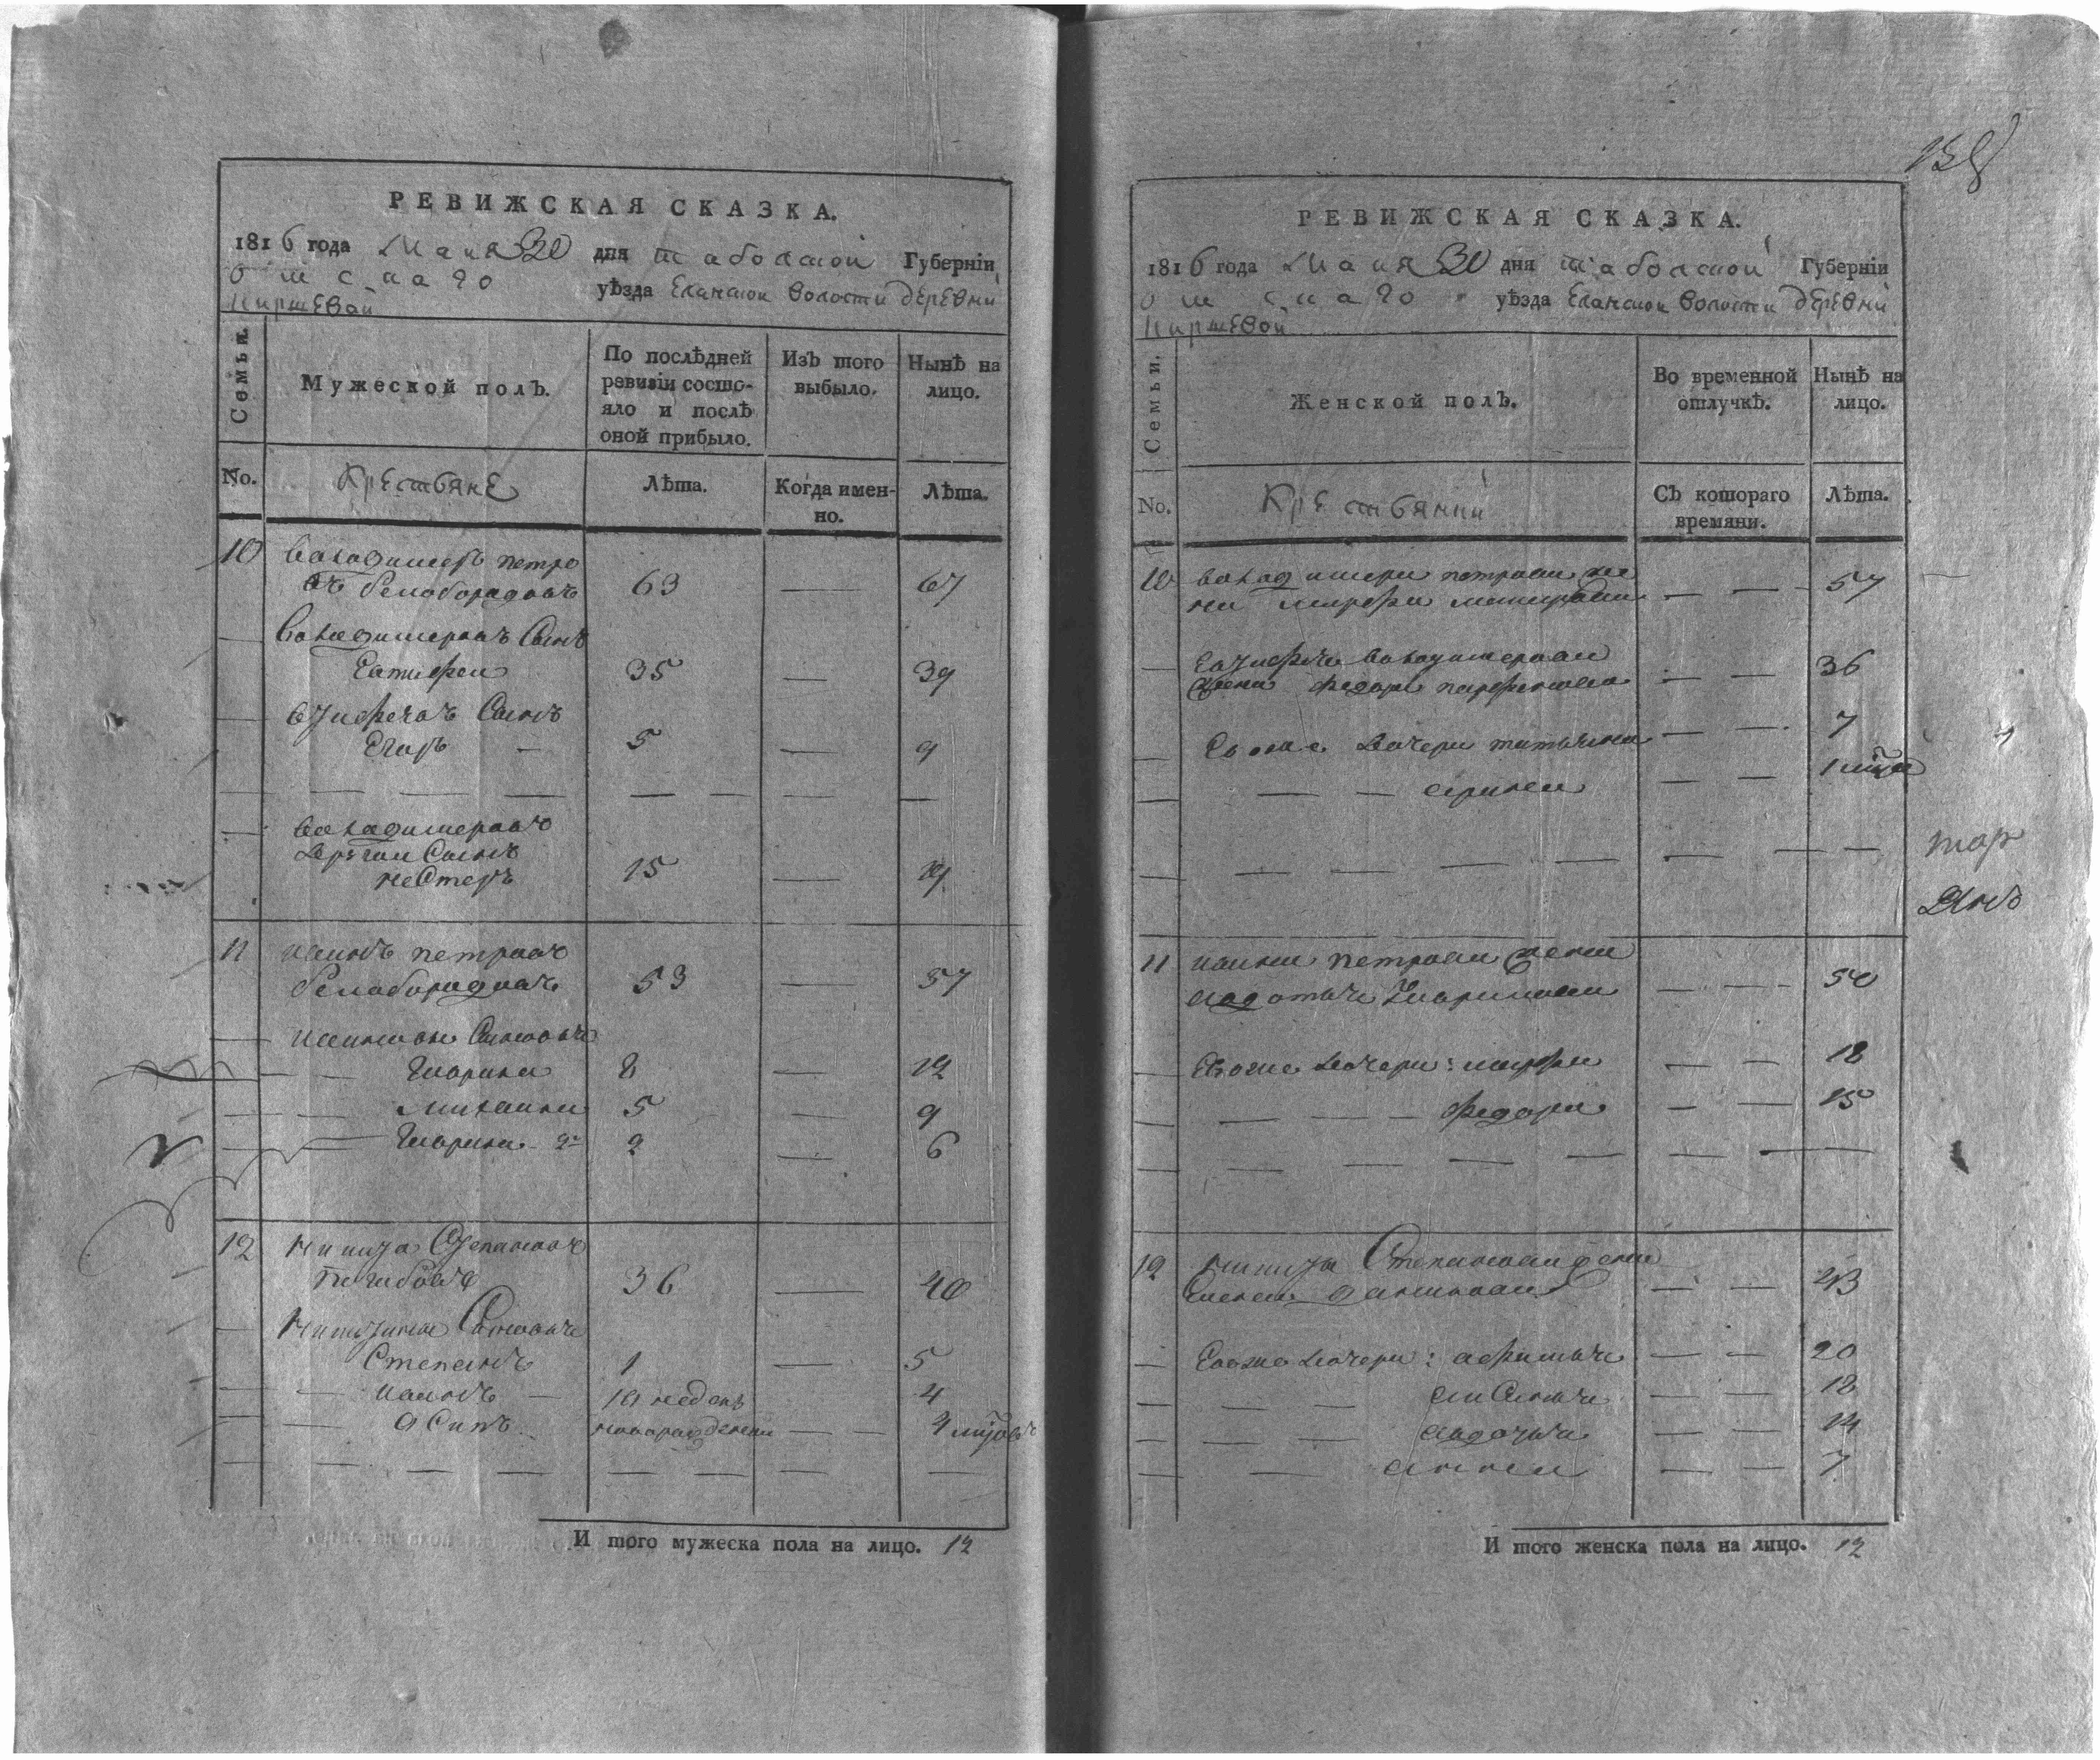 РЕВИЖСКАЯ СКАЗКА.
1816 года Маия 30 дня табольской Губерніи
омскаго уѣзда Еланской волости деревни
Киршевой
Семьи.
Мужеской полъ.
По послѣдней
ревизіи состо-
яло и послѣ
оной прибыло.
Изъ того
выбыло.
Нынѣ на
лицо.
No.
Крестьяне
Лѣта.
Когда имен-
но.
Лѣта.
10 Володимеръ петро
въ белобородовъ 63 — 67
— Володимеровъ Сынъ
Евтифеи 35 — 39
— Сынъ
Егоръ — 5 — 9
— Володимеровъ
Сынъ
неСтеръ 15 — 19
11 иванъ петровъ
белобородовъ 53 — 57
— ивановы Сыновья
Гаврила 8 — 12
— — михаила 5 — 9
— — Гаврила 2й 2 — 6
12 никита Степановъ
36 — 40
— никитины Сыновья
Степанъ 1 — 5
— — иванъ — 10 недель 4
— — осипъ новорожденъ — — 4
И того мужеска пола на лицо. 12
РЕВИЖСКАЯ СКАЗКА.
1816 года Маия 30 дня табольской Губерніи
омскаго уѣзда Еланской волости деревни
Киршевой
Семьи.
Женской полъ.
Во временной
отлучкѣ.
Нынѣ на
лицо.
No.
Крестьянки
Съ котораго
времяни.
Лѣта.
10 володимера петрова же
на марфа — — 57
— Евтифея володимерова
жена федора парфенова — — 36
— Евоже дочери татьяна — — 7
— — — арина — — 1
11 ивана петрова жена
авдотья Гаврилова — — 50
— Евоже дочери: марфа — — 18
— — — федора — — 15
12 никиты Степанова жена
Елена — — 43
— Евоже дочери: афимья — — 20
— — — аксинья — — 18
— — — авдотья — — 14
— — — анна — — 7
И того женска пола на лицо. 12